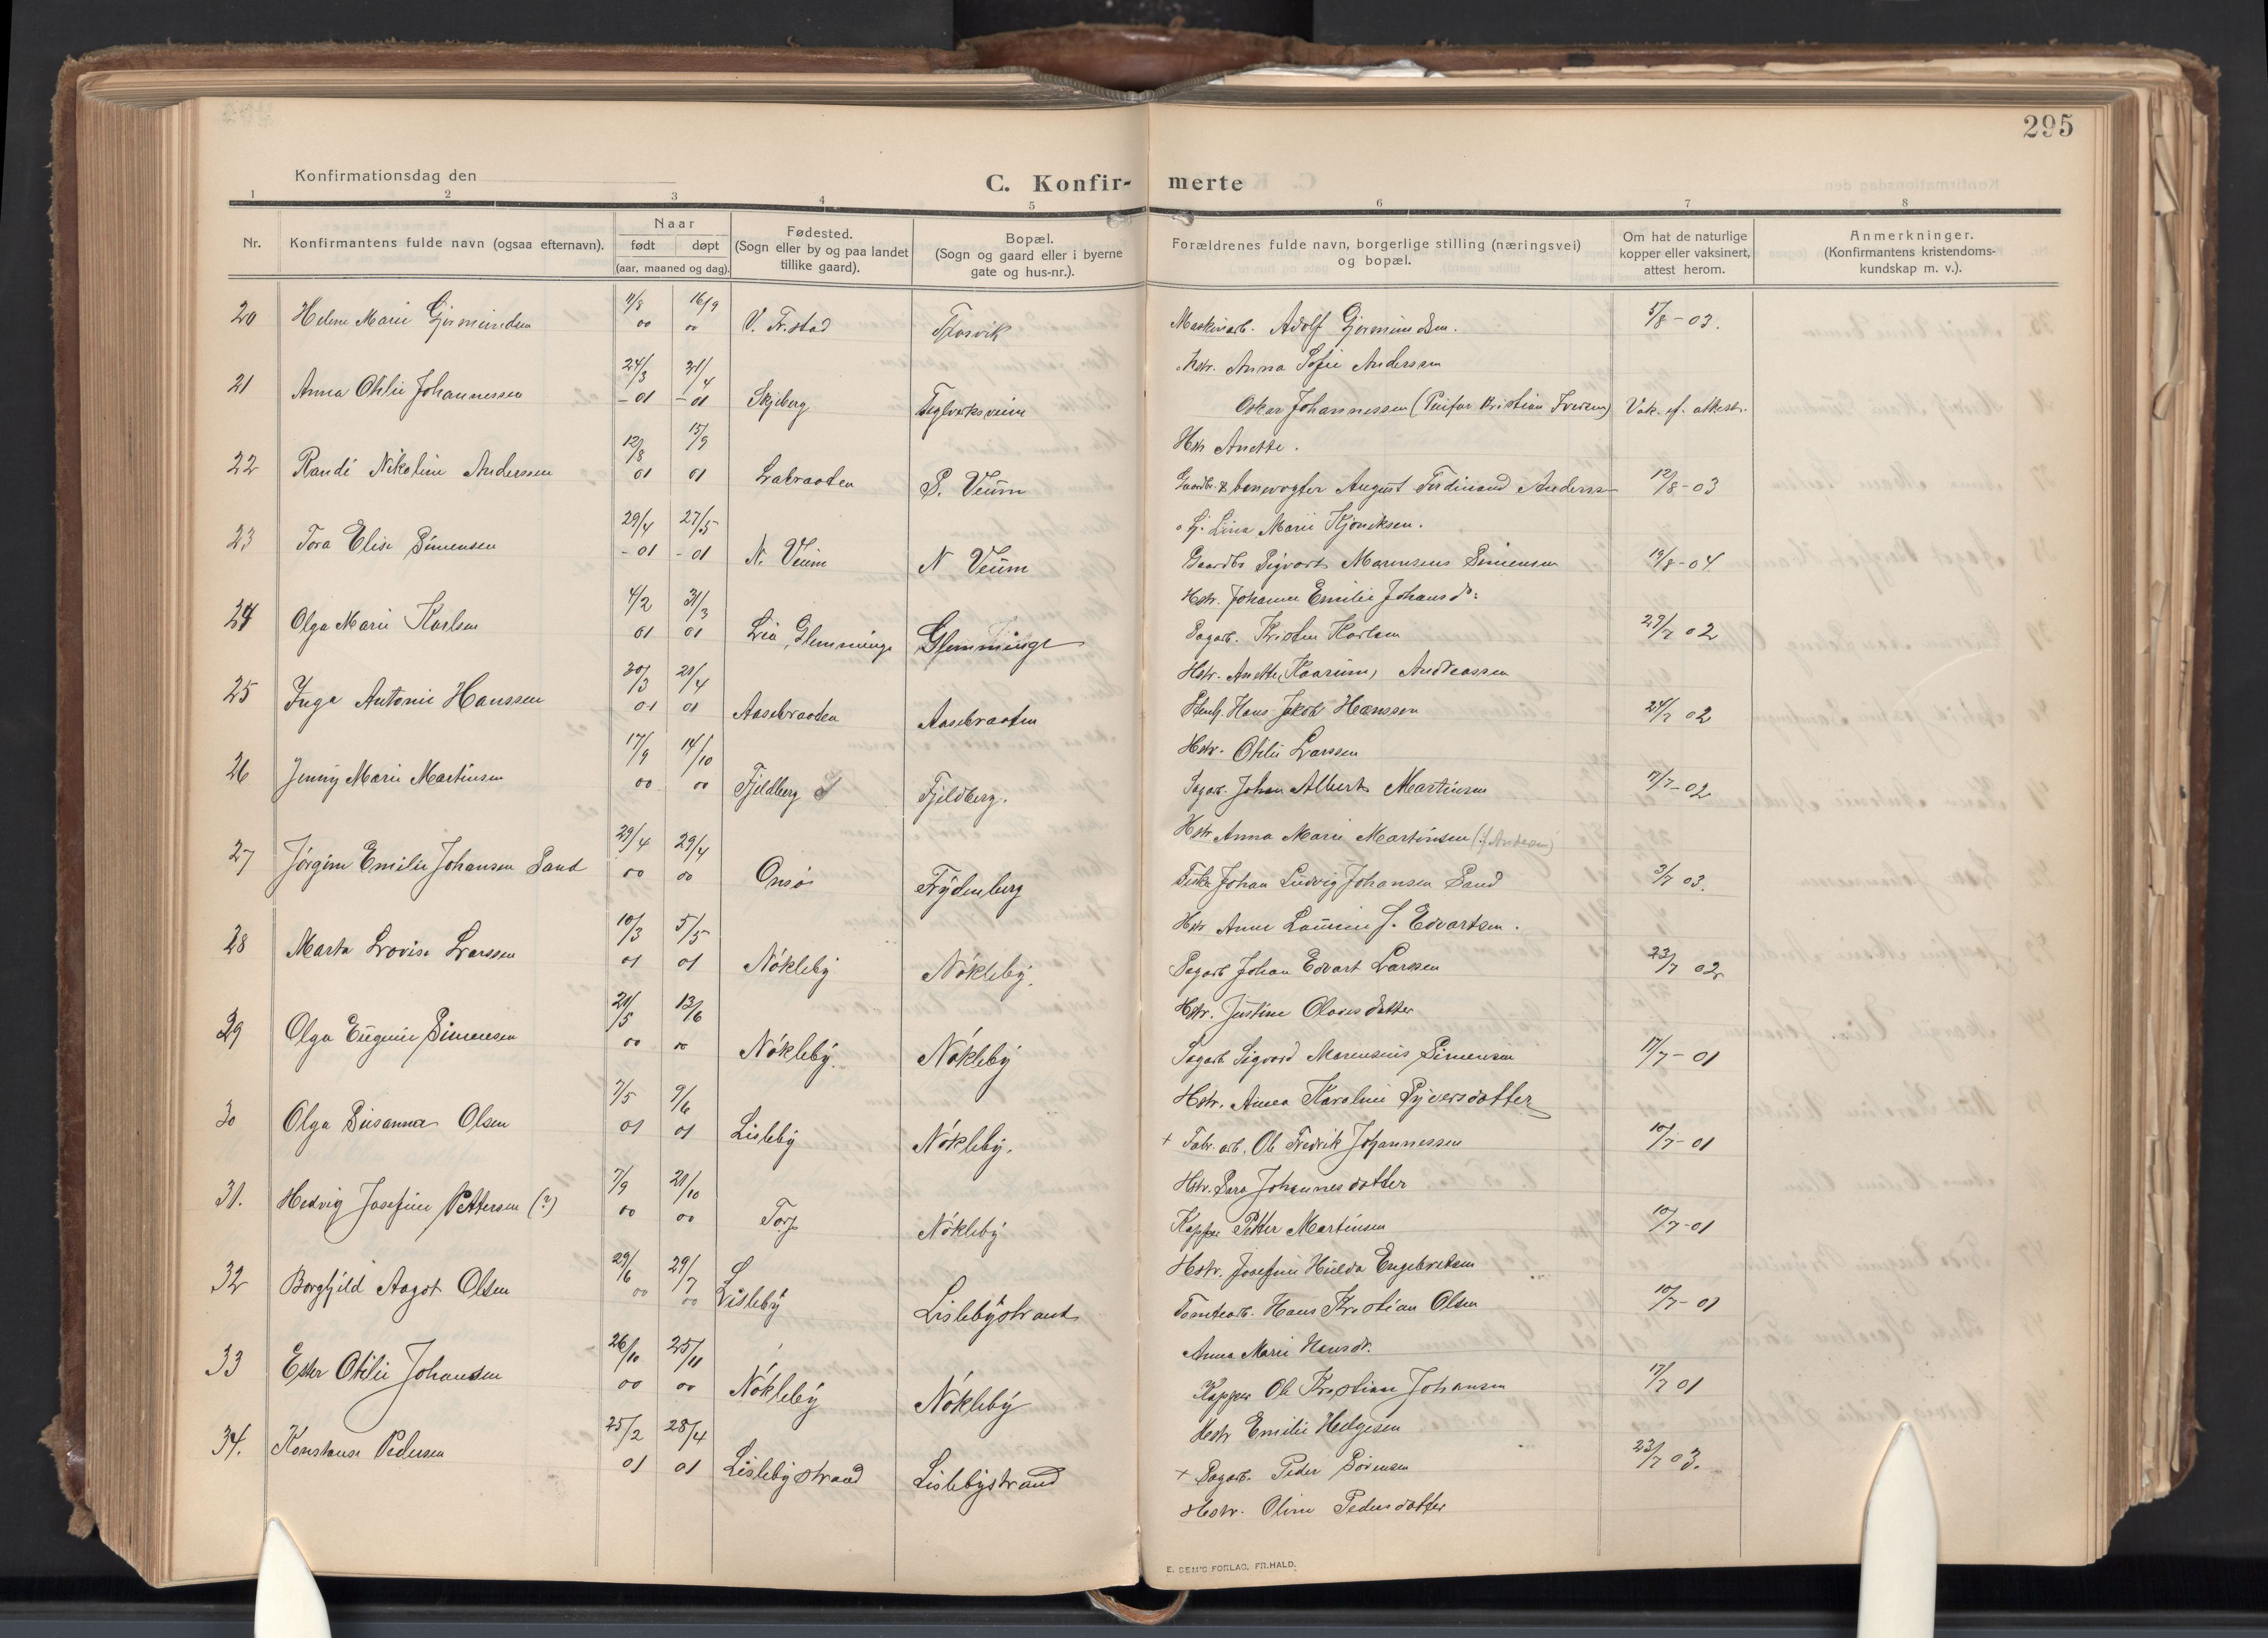 295
Konfirmationsdag den
C. Konfir- merte
1 2 3 4 5 6 7 8
Nr.
Konfirmantens fulde navn (ogsaa efternavn).
Naar
født døpt
(aar, maaned og dag).
Fødested.
(Sogn eller by og paa landet
tillike gaard).
Bopæl.
(Sogn og gaard eller i byerne
gate og hus-nr.).
Forældrenes fulde navn, borgerlige stilling (næringsvei)
og bopæl.
Om hat de naturlige
kopper eller vaksinert,
attest herom.
Anmerkninger.
(Konfirmantens kristendoms-
kundskap m. v.).
20 Helene Marie Gjermundsen 11/8 00 16/9 00 V. Fr.stad Maskinarb. Adolf Gjermundsen. 5/8-03.
Hstr. Anna Sofie Anderssen
21 Anna Otilie Johannessen 24/3 -01 21/4 -01 Skjeberg Teglverksveien Oskar Johannessen ( Kristian Iversen) Vak. efl. attest.
Hstr Anette.
22 Randi Nikoline Anderssen 12/8 01 15/9 01 Labraaten S. Veum Gaardbr. & banevogter August Ferdinand Anderss 12/8-03
o. Hj. Lina Marie Kjøniksen.
23 Tora Elise Simensen 29/4 -01 27/5 -01 N. Veum N Veum Gaardbr Sigvart Marensius Simensen 19/8-04
Hstr. Johanne Emilie Johansdr.
24 Olga Marie Karlsen 4/2 01 31/3 01 Lia, Glemminge Glemminge Sagarb. Kristen Karlsen 29/7 02
Hstr. Anette (Kaarine) Andreassen
25 Inga Antonie Hanssen 30/3 01 21/4 01 Aasebraaten Aasebraaten Stenh. Hans Jakob Hanssen 24/7 02
Hstr. Otilie Larssen
26 Jenny Marie Martinsen 17/9 00 14/10 00 Fjeldberg Fjeldberg. Sagarb. Johan Albert Martinsen 11/7-02
Hstr Anna Marie Martinsen (f. Andersen)
27 Jørgine Emilie Johansen Sand 29/4 00 29/4 00 Onsø Frydenberg Fisker Johan Ludvig Johansen Sand 3/7 03.
Hstr Anne Laurine J. Edvartsen.
28 Marta Lovise Larssen 10/3 01 5/5 01 Nøkleby Nøkleby. Sagarb Johan Edvart Larssen 23/7 02
Hstr. Justine Olavesdatter
29 Olga Eugenie Simensen 21/5 00 13/6 00 Nøkleby. Nøkleby Sagarb Sigvard Marensius Simensen 17/7-01
Hstr. Karoline Syversdatter
30 Olga Susanna Olsen 7/5 01 9/6 01 Lisleby Nøkleby. + Fabr. arb. Ole Fredrik Johannessen 10/7-01
Hstr. Sara Johannesdatter
31. Hedvig Josefine Pettersen (?) 7/9 00 21/10 00 Torp Nøkleby Kapper Petter Martinsen 10/7-01
Hstr. Josefine Hulda Engebretsen
32 Borghild Aagot Olsen 29/6 00 29/7 00 Lisleby Lislebystrand Tomtearb. Hans Kristian Olsen 10/7-01
Anna Marie Hansdr.
33 Ester Otilie Johansen 26/10 00 25/11 00 Nøkleby Nøkleby Kapper Ole Kristian Johansen 17/7 01
Hstr Emilie Helgesen
34. Konstanse Pedersen 25/2 01 28/4 01 Lislebystrand Lislebystrand + Sagarb. Peder Sørensen 23/7 03.
Hstr. Oline Pedersdatter
E. SEM'S FORLAG, FR.HALD.